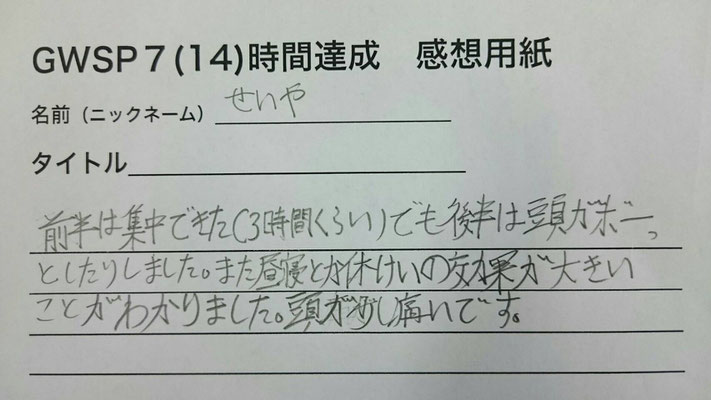 GWSP７(14)時間達成　感想用紙
名前（ニックネーム）せいや
タイトル
前半は集中できた(3時間くらい)でも後半は頭がボーっ
としたりしました。また昼寝とか休けいの効果が大きい
ことがわかりました。頭が少し痛いです。